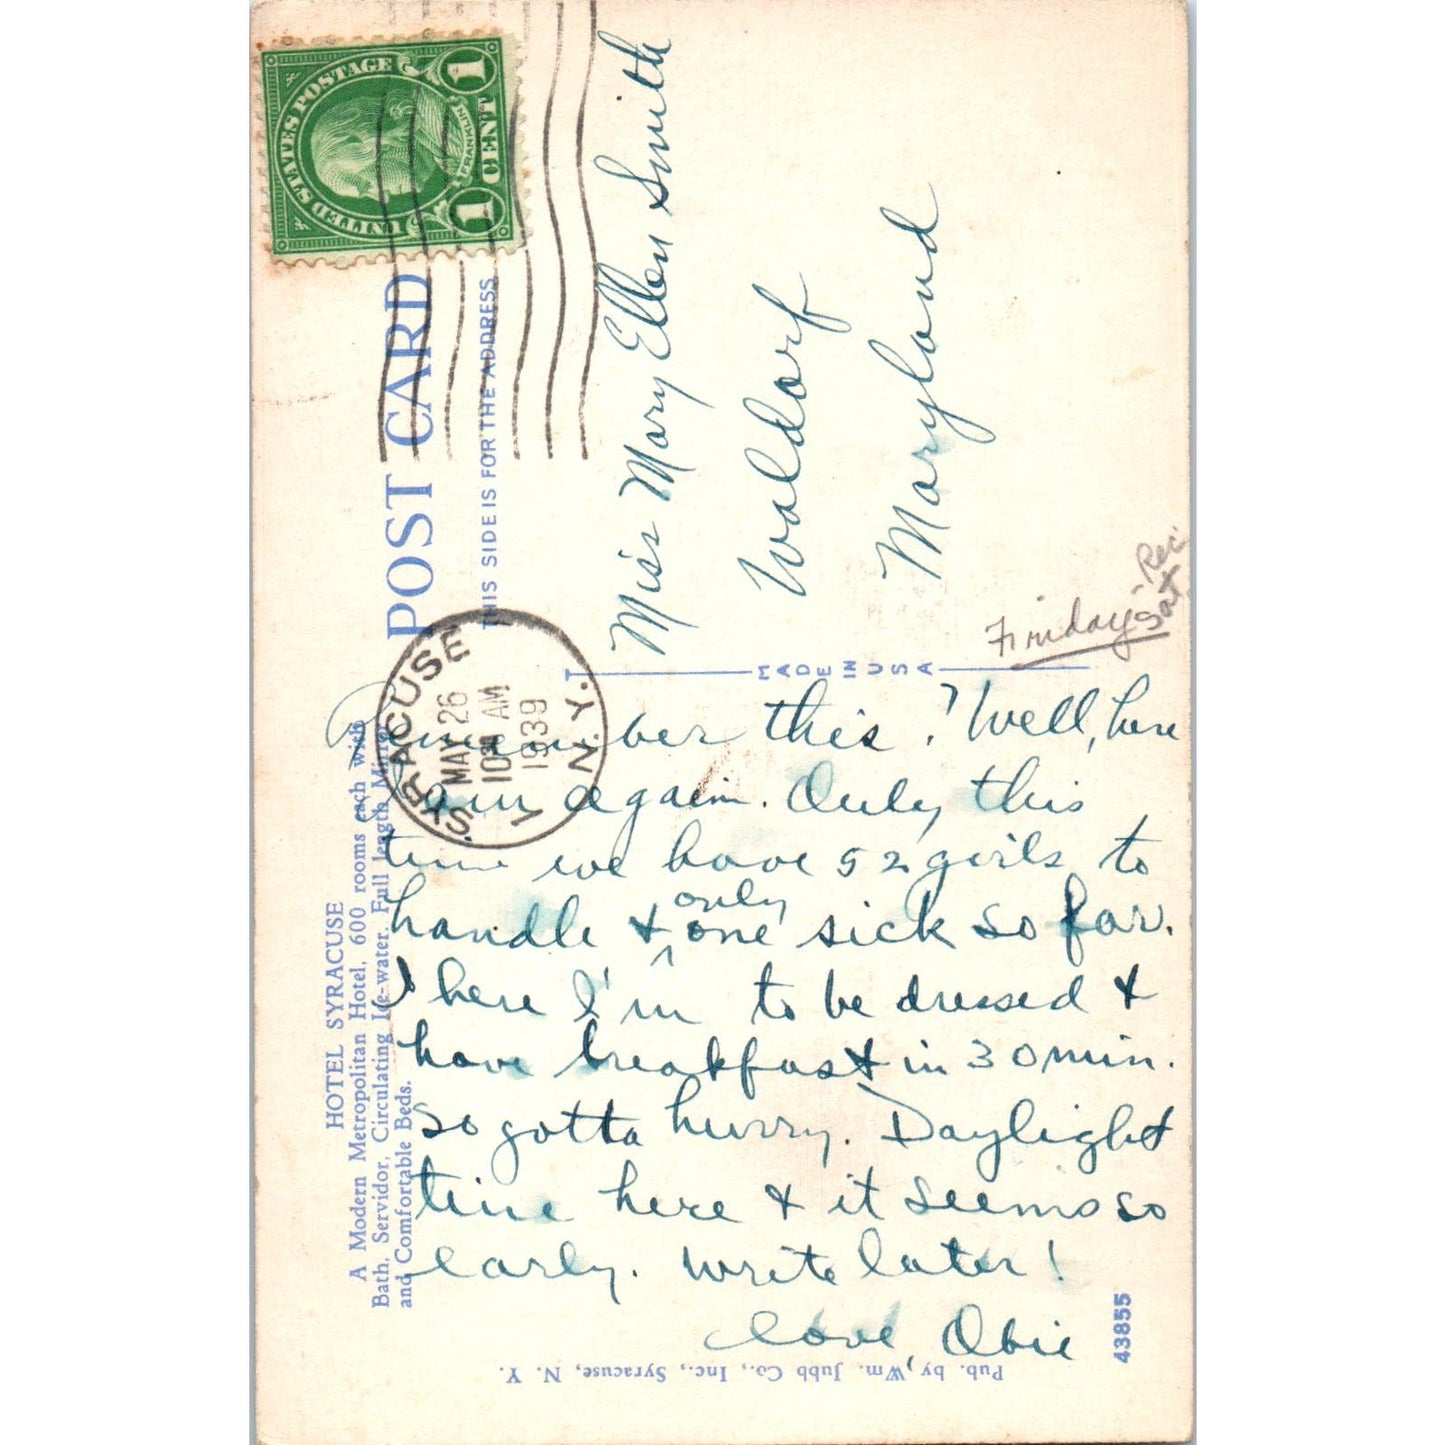 UNITED STATES POSTAGE
FRANKLIN
1 CENT 1
POST CARD
THIS SIDE IS FOR THE ADDRESS
SYRACUSE
MAY 26
10 AM
1939
N.Y.
Miss Mary Ellen Smith
Waldorf
Maryland
Friday -
Rec.
Sat.
MADE IN USA
HOTEL SYRACUSE
A Modern Metropolitan Hotel, 600 rooms each with
Bath, Servidor, Circulating Ice-water, Full length Mirror
and Comfortable Beds.
Remember this? Well, here
I am again. Only this
time we have 52 girls to
handle & only one sick so far.
I here I'm to be dressed &
have breakfast in 30 min.
So gotta hurry. Daylight
time here & it seems so
early. Write later!
Love, Obie
Pub. by Wm. Jubb Co., Inc., Syracuse, N. Y.
43855